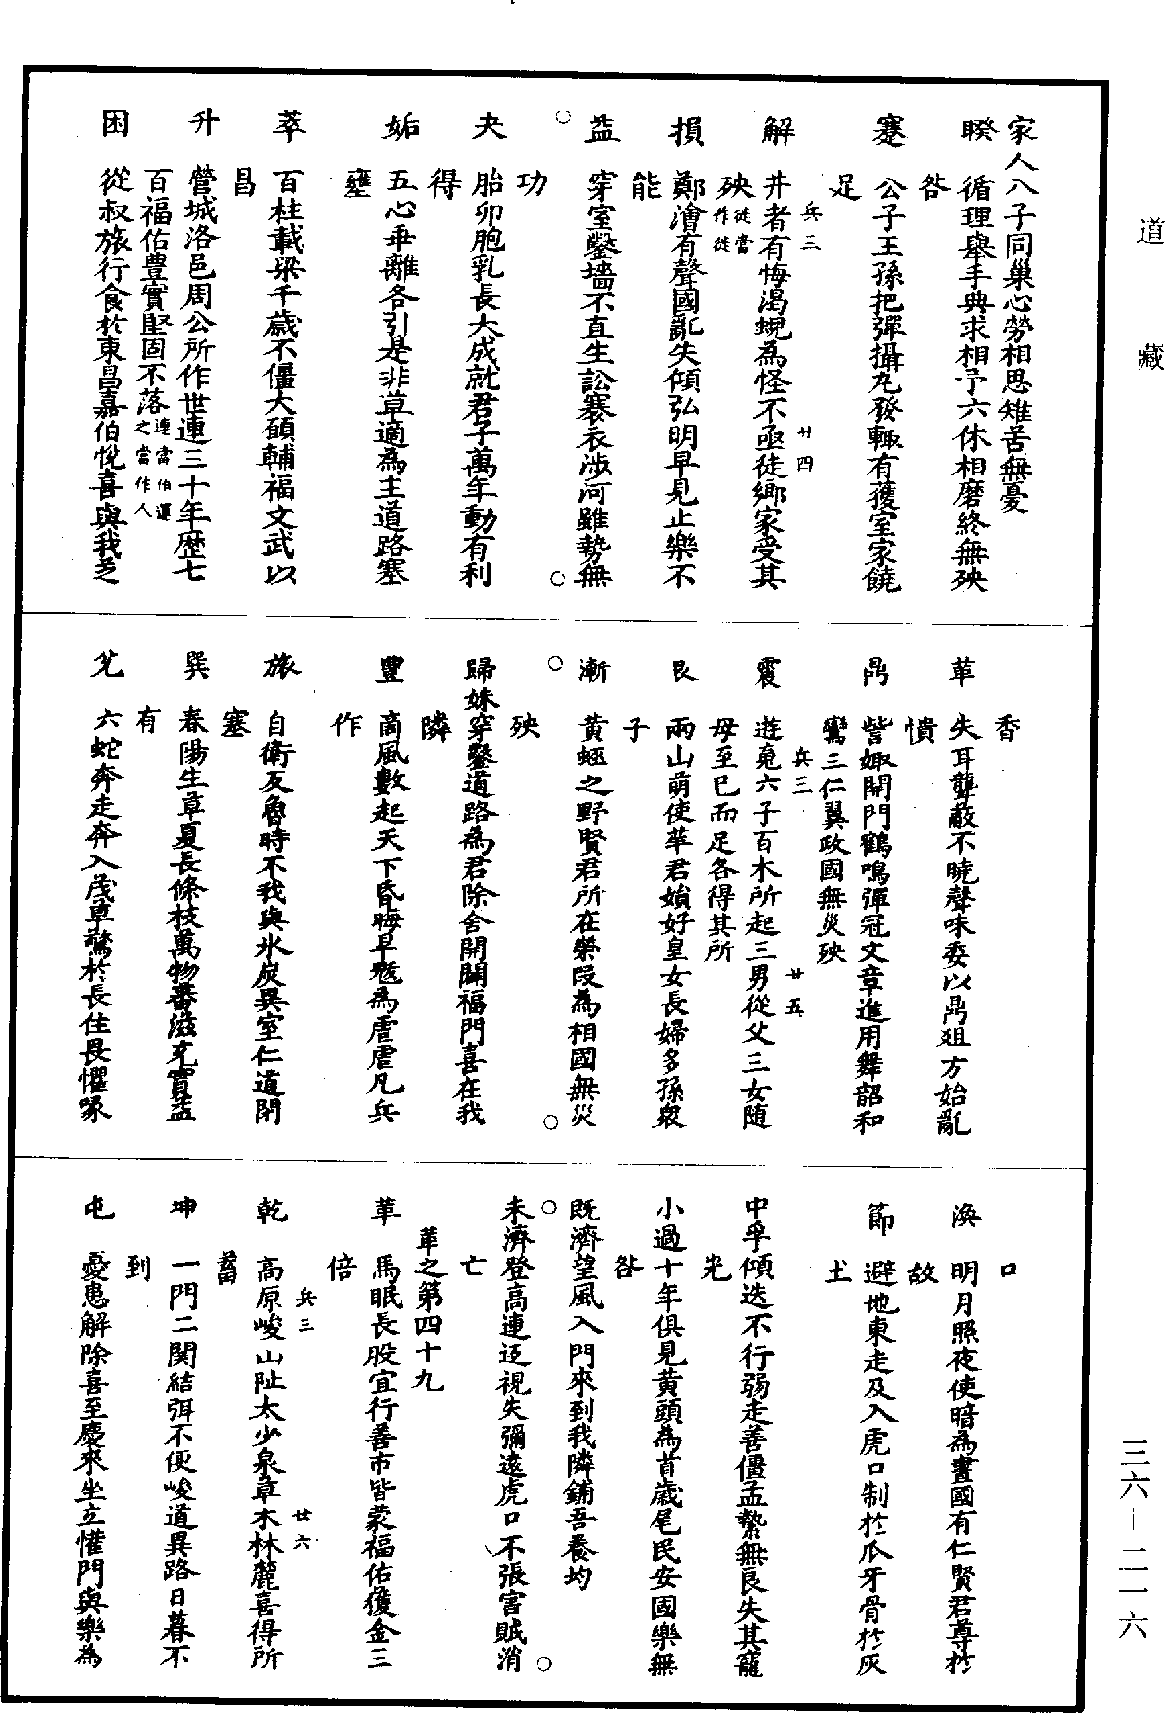 道藏
家人八子同巢心勞相思雖苦無憂
睽 循理舉手典求相予六休相磨終無殃
咎
蹇 公子王孫把彈攝丸發輒有獲室家饒
足
兵三 廿四
解 井者有悔渴蜺為怪不亟徒鄉家受其
殃徒當作從
損 鄭澮有聲國亂失傾弘明早見止樂不
能
益 穿室鑿墻不直生訟褰衣涉河雖勢無
功
夬 胎卵胞乳長大成就君子萬年動有利
得
姤 五心乖離各引是非莫適為主道路塞
壅
萃 百柱載梁千歲不僵大碩輔福文武以
昌
升 營城洛邑周公所作世連三十年歷七
百福佑豊實堅固不落連當作選之當作人
困 從叔旅行食於東昌嘉伯悅喜與我芝
香
革 失耳聾蔽不曉聲味委以鼎俎方始亂
憒
鼎 訾娵開門鶴鳴彈冠文章進用舞韶和
鸞三仁翼政國無災殃
兵三 廿五
震 遊䰟六子百木所起三男從父三女随
母至巳而足各得其所
艮 兩山萌使華君媍好皇女長婦多孫衆
子
漸 黃蛭之野賢君所在榮段為相國無災
殃
歸妹穿鑿道路為君除舍開闢福門喜在我
隣
豐 商風數起天下昏晦旱魃為虐虐凡兵
作
旅 自衛反魯時不我與冰炭異室仁道閉
塞
巽 春陽生草夏長條枝萬物蕃滋充實盖
有
兌 六蛇奔走奔入茂草驚於長住畏懼啄
口
渙 明月照夜使暗為晝國有仁賢君尊於
故
節 避地東走及入虎口制於爪牙骨於灰
土
中孚傾迭不行弱走善僵孟縶無良失其寵
光
小過十年俱見黃頭為首歲尾民安國樂無
咎
既濟望風入門來到我隣鋪吾養均
未濟登高連迓視失彌遠虎口不張害賊消
亡
革之第四十九
革 馬眠長股宜行善市皆蒙福佑獲金三
倍
兵三 廿六
乾 高原峻山阯太少泉草木林麓喜得所
蓄
坤 一門二関結弭不便峻道異路日暮不
到
屯 憂患解除喜至慶來坐立懽門與樂為
三六一二一六